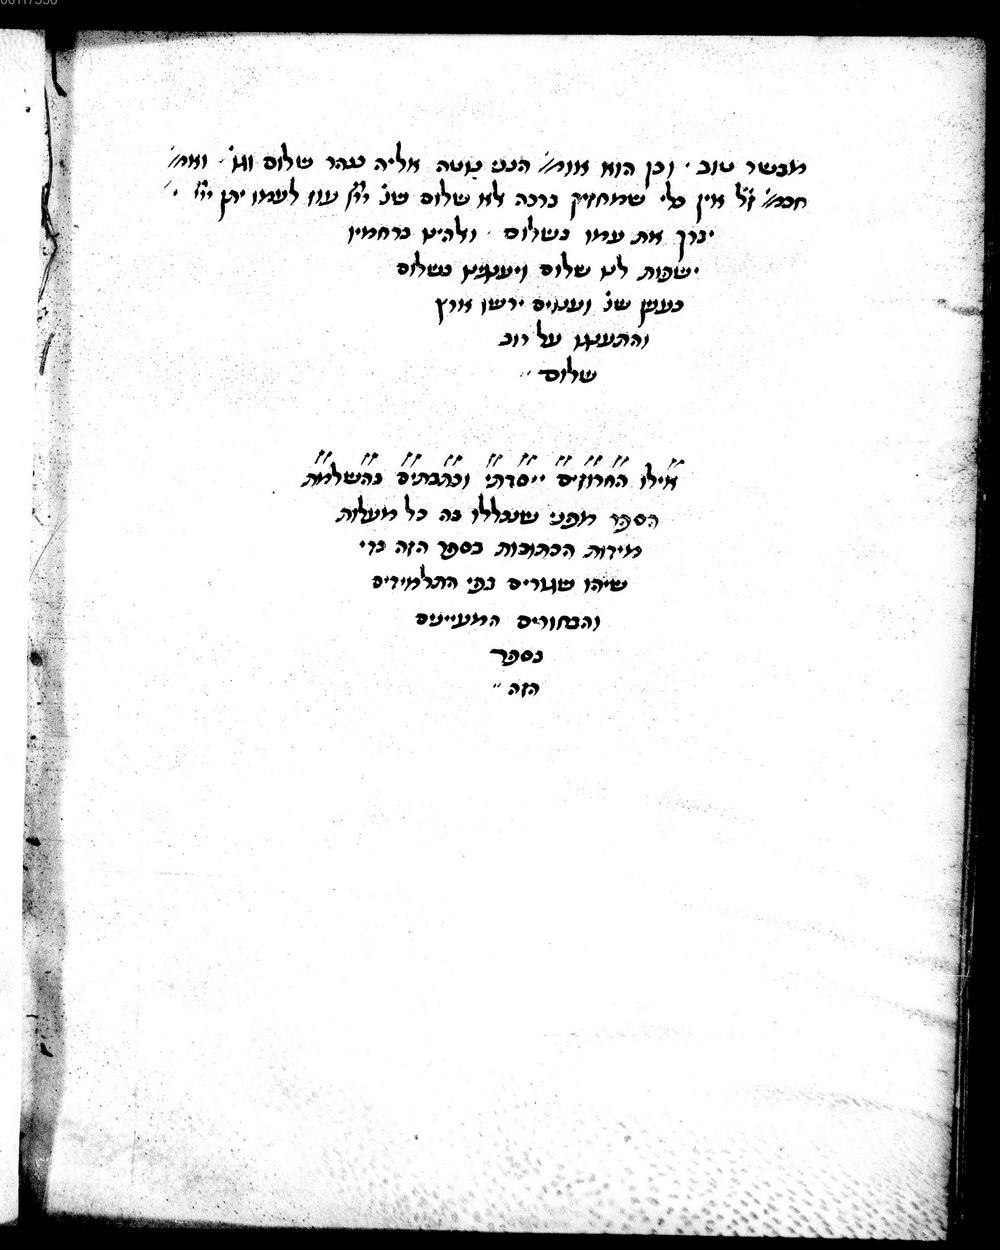 מבשר טוב · וכן הוא אומ׳ הנני נוטה אליה כנהר שלום וגו׳ · ואמ׳
חכמ׳ ז״ל אין כלי שמחזיק ברכה לא שלום שנ׳ יי׳ עוז לעמו יתן יי׳ ·
יברך את עמו בשלום · ואלהים ברחמיו
ישפות לנו שלום ויענגינו בשלום
כעניין שנ׳ וענוים ירשו ארץ
והתענגו על רוב
שלום
אילו החרוזים ייסדתי וכתבתים בהשלמת
הספר מפני שנכללו בה כל מעלות
מידות הכתובות בספר הזה כדי
שיהו שגורים בפי התלמידים
והבחורים המעיינים
בספר
הזה